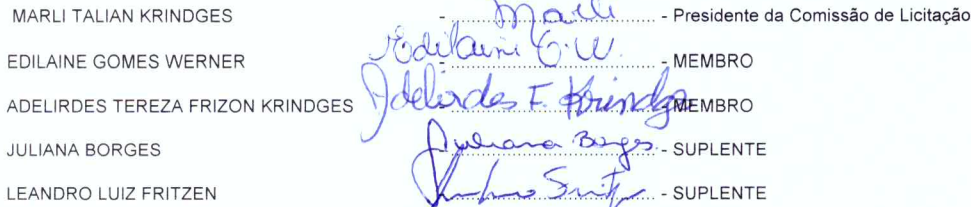 MARLI TALIAN KRINDGES - Marli - Presidente da Comissão de Licitação
EDILAINE GOMES WERNER - Edilaine G.W. - MEMBRO
ADELIRDES TEREZA FRIZON KRINDGES Adelirdes F. Krindges MEMBRO
JULIANA BORGES Juliana Borges - SUPLENTE
LEANDRO LUIZ FRITZEN - SUPLENTE